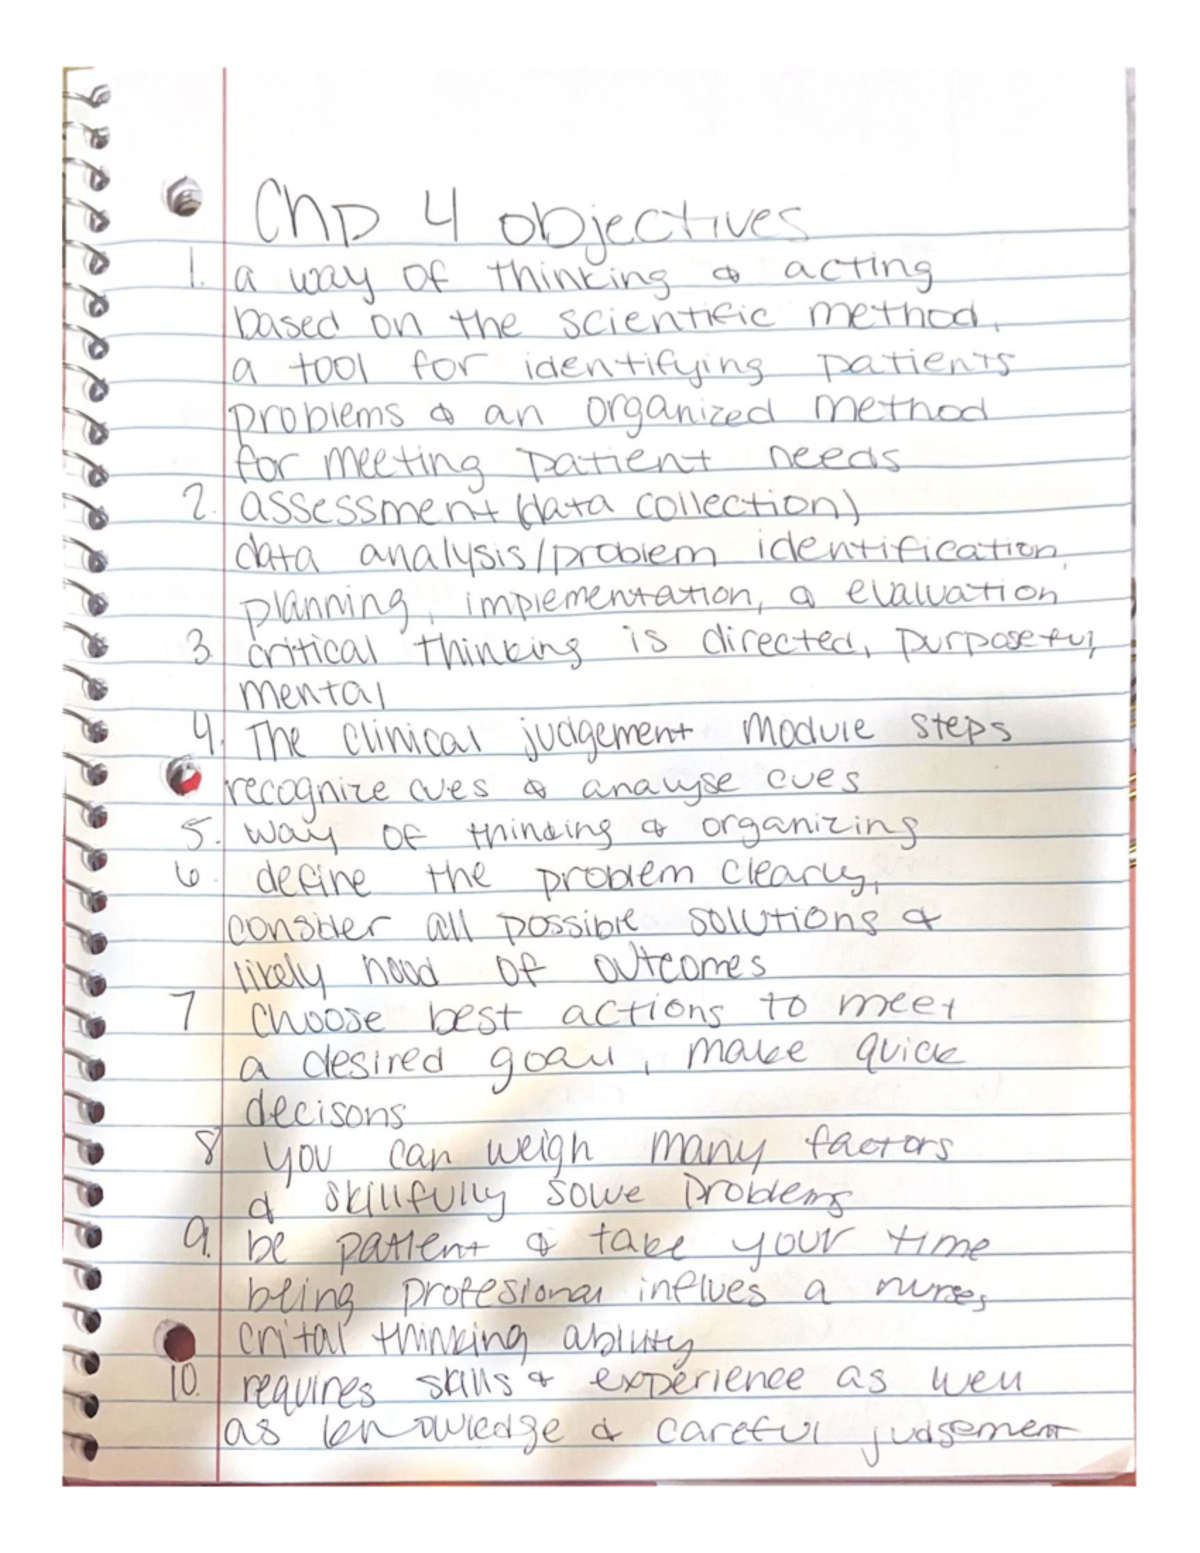 Chp 4 objectives
1. a way of thinking & acting
based on the scientific method,
a tool for identifying patients
problems & an organized method
for meeting patient needs
2. assessment (data collection)
data analysis/problem identification,
planning, implementation, & evaluation
3. critical thinking is directed, purposeful,
mental
4. The clinical judgement module steps
recognize cues & analyse cues
5. way of thinking & organizing
6. define the problem clearly,
consider all possible solutions &
likely hood of outcomes
7 choose best actions to meet
a desired goal, make quick
decisons
8 you can weigh many factors
& skillfully solve problems
9. be patient & take your time
being profesional inflves a nurses
crital thinking ability
10. requires skills & experience as well
as knowledge & careful judgement